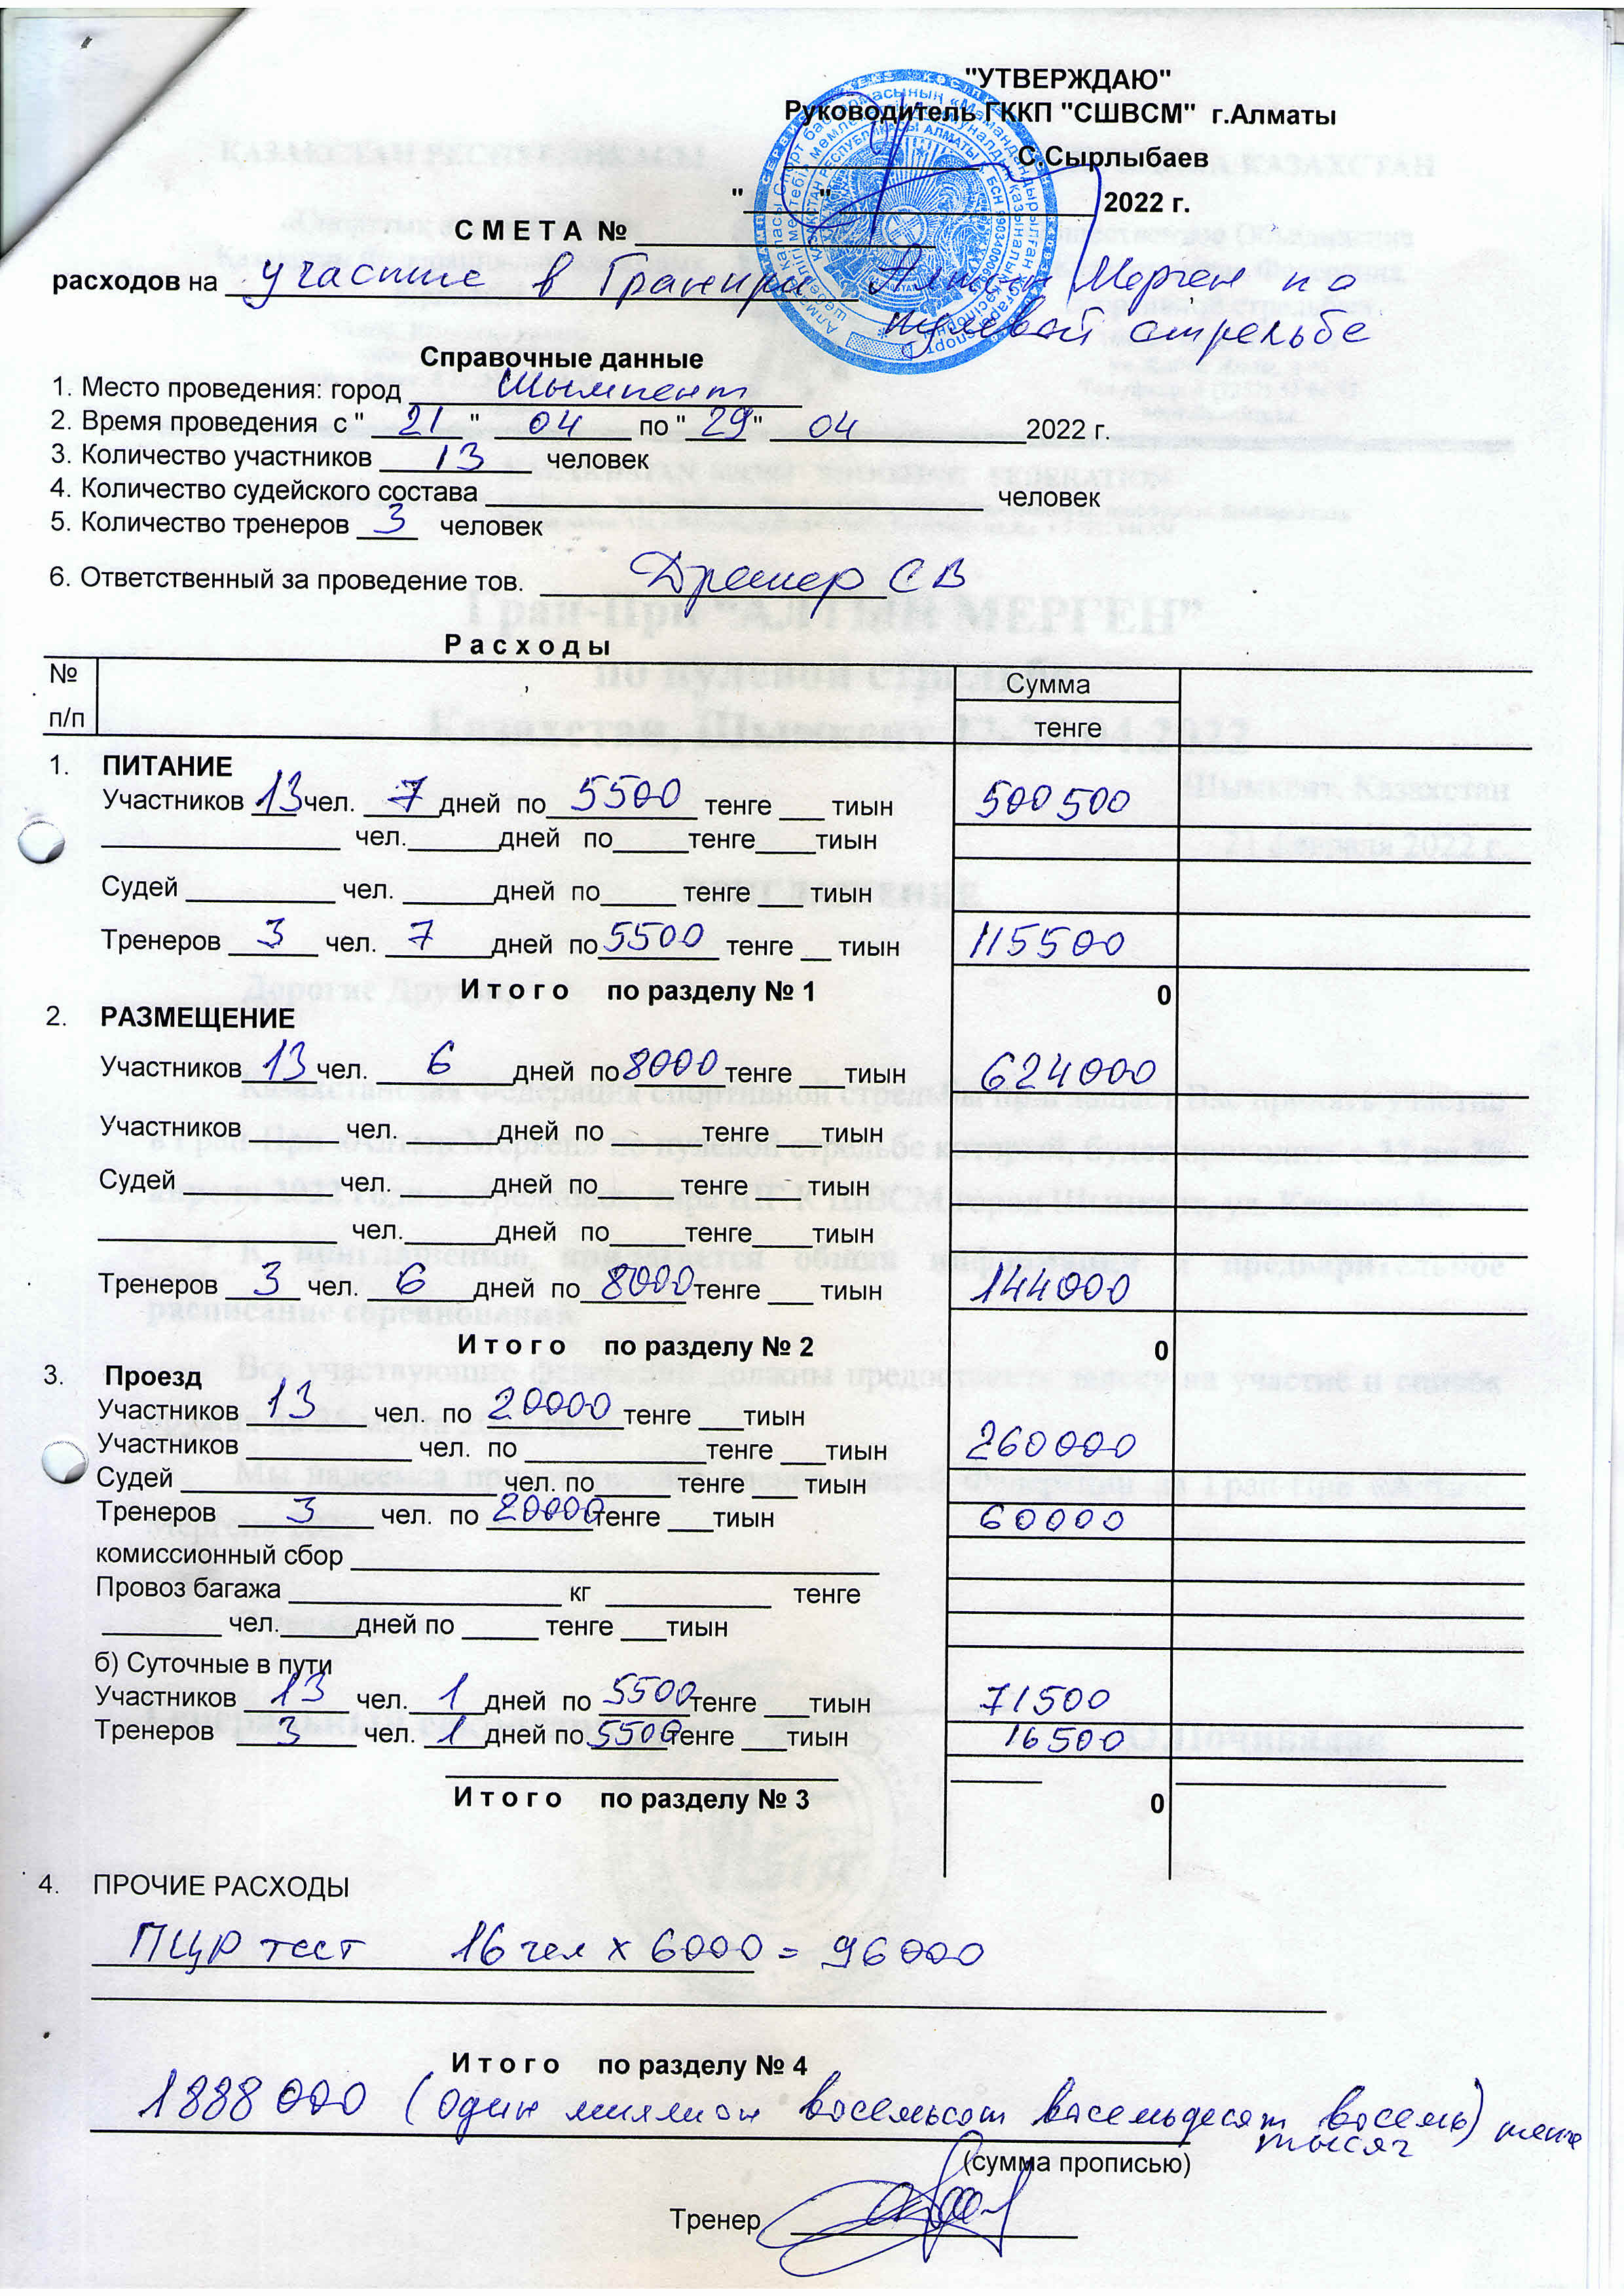 "УТВЕРЖДАЮ"
Руководитель ГККП "СШВСМ" г.Алматы
С.Сырлыбаев
"____" ____ 2022 г.
С М Е Т А № ____
расходов на участие в Гранпри Алтын Мерген по
пулевой стрельбе
Справочные данные
1. Место проведения: город Шымкент
2. Время проведения с " 21 " 04 по " 29 " 04 2022 г.
3. Количество участников 13 человек
4. Количество судейского состава ____ человек
5. Количество тренеров 3 человек
6. Ответственный за проведение тов. СВ
Р а с х о д ы
№ п/п Сумма
тенге
1. ПИТАНИЕ
Участников 13 чел. 7 дней по 5500 тенге ___ тиын 500500
____ чел.____дней по____тенге____тиын
Судей ____ чел. ____дней по____ тенге ___ тиын
Тренеров 3 чел. 7 дней по 5500 тенге __ тиын 115500
И т о г о по разделу № 1 0
2. РАЗМЕЩЕНИЕ
Участников 13 чел. 6 дней по 8000 тенге ___тиын 624000
Участников ____ чел. ____дней по ____тенге ___тиын
Судей ____чел. ____дней по____ тенге ___ тиын
____ чел.____дней по____тенге____тиын
Тренеров 3 чел. 6 дней по 8000 тенге ___ тиын 144000
И т о г о по разделу № 2 0
3. Проезд
Участников 13 чел. по 20000 тенге ___тиын
Участников ____ чел. по ____тенге ___тиын 260000
Судей ____ чел. по____ тенге ___ тиын
Тренеров 3 чел. по 20000 тенге ___тиын 60000
комиссионный сбор ____
Провоз багажа ____ кг ____ тенге
____ чел.____дней по ____ тенге ___тиын
б) Суточные в пути
Участников 13 чел. 1 дней по 5500 тенге ___тиын 71500
Тренеров 3 чел. 1 дней по 5500 тенге ___тиын 16500
И т о г о по разделу № 3 0
4. ПРОЧИЕ РАСХОДЫ
ПЦР тест 16 чел х 6000 = 96000
И т о г о по разделу № 4
1888 000 (один миллион восемьсот восемьдесят восемь) тенге
тысяч
(сумма прописью)
Тренер